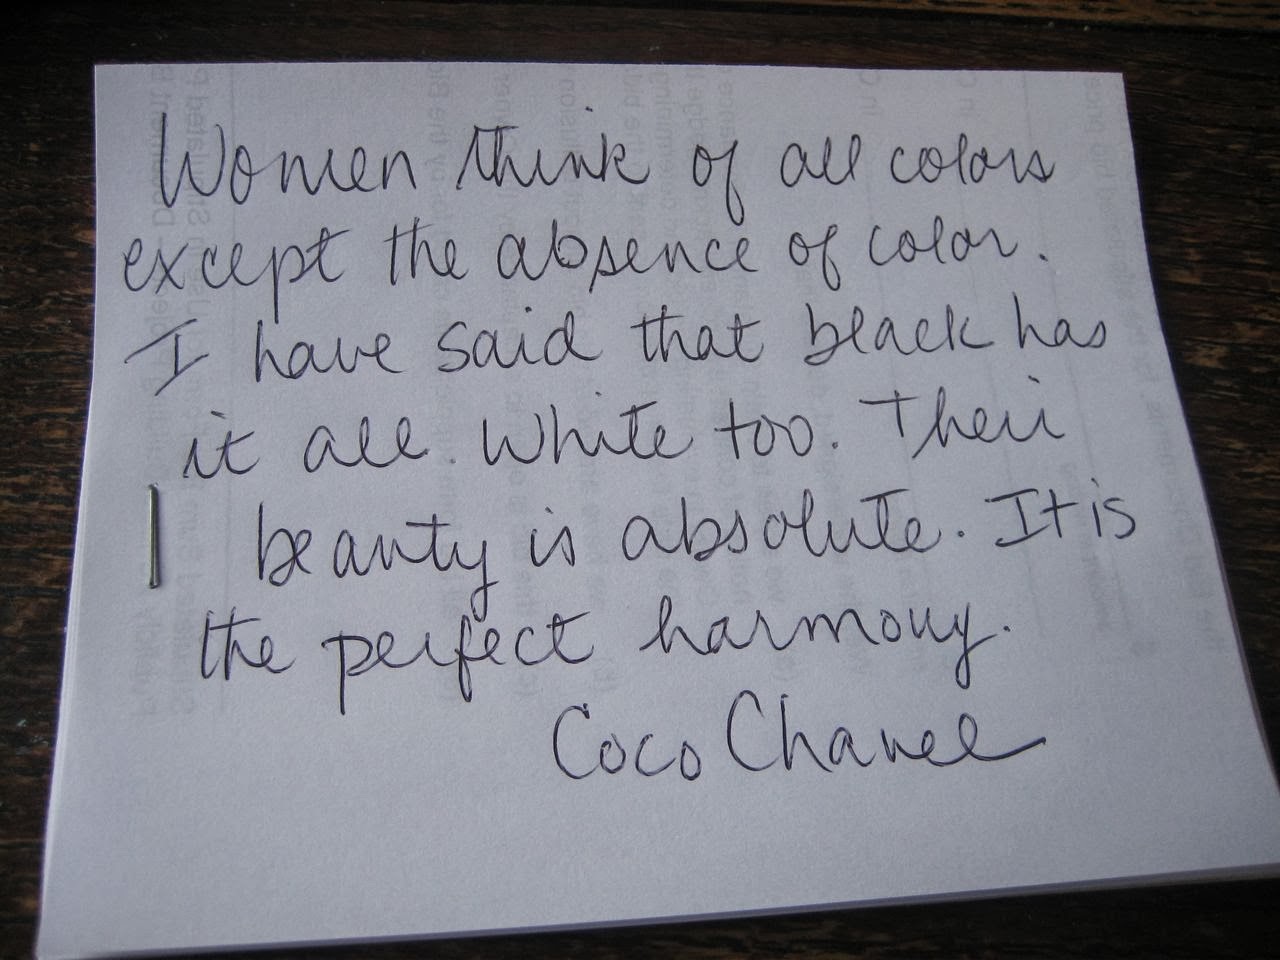 Women think of all colors
except the absence of color.
I have said that black has
it all. White too. Their
beauty is absolute. It is
the perfect harmony.
Coco Chanel